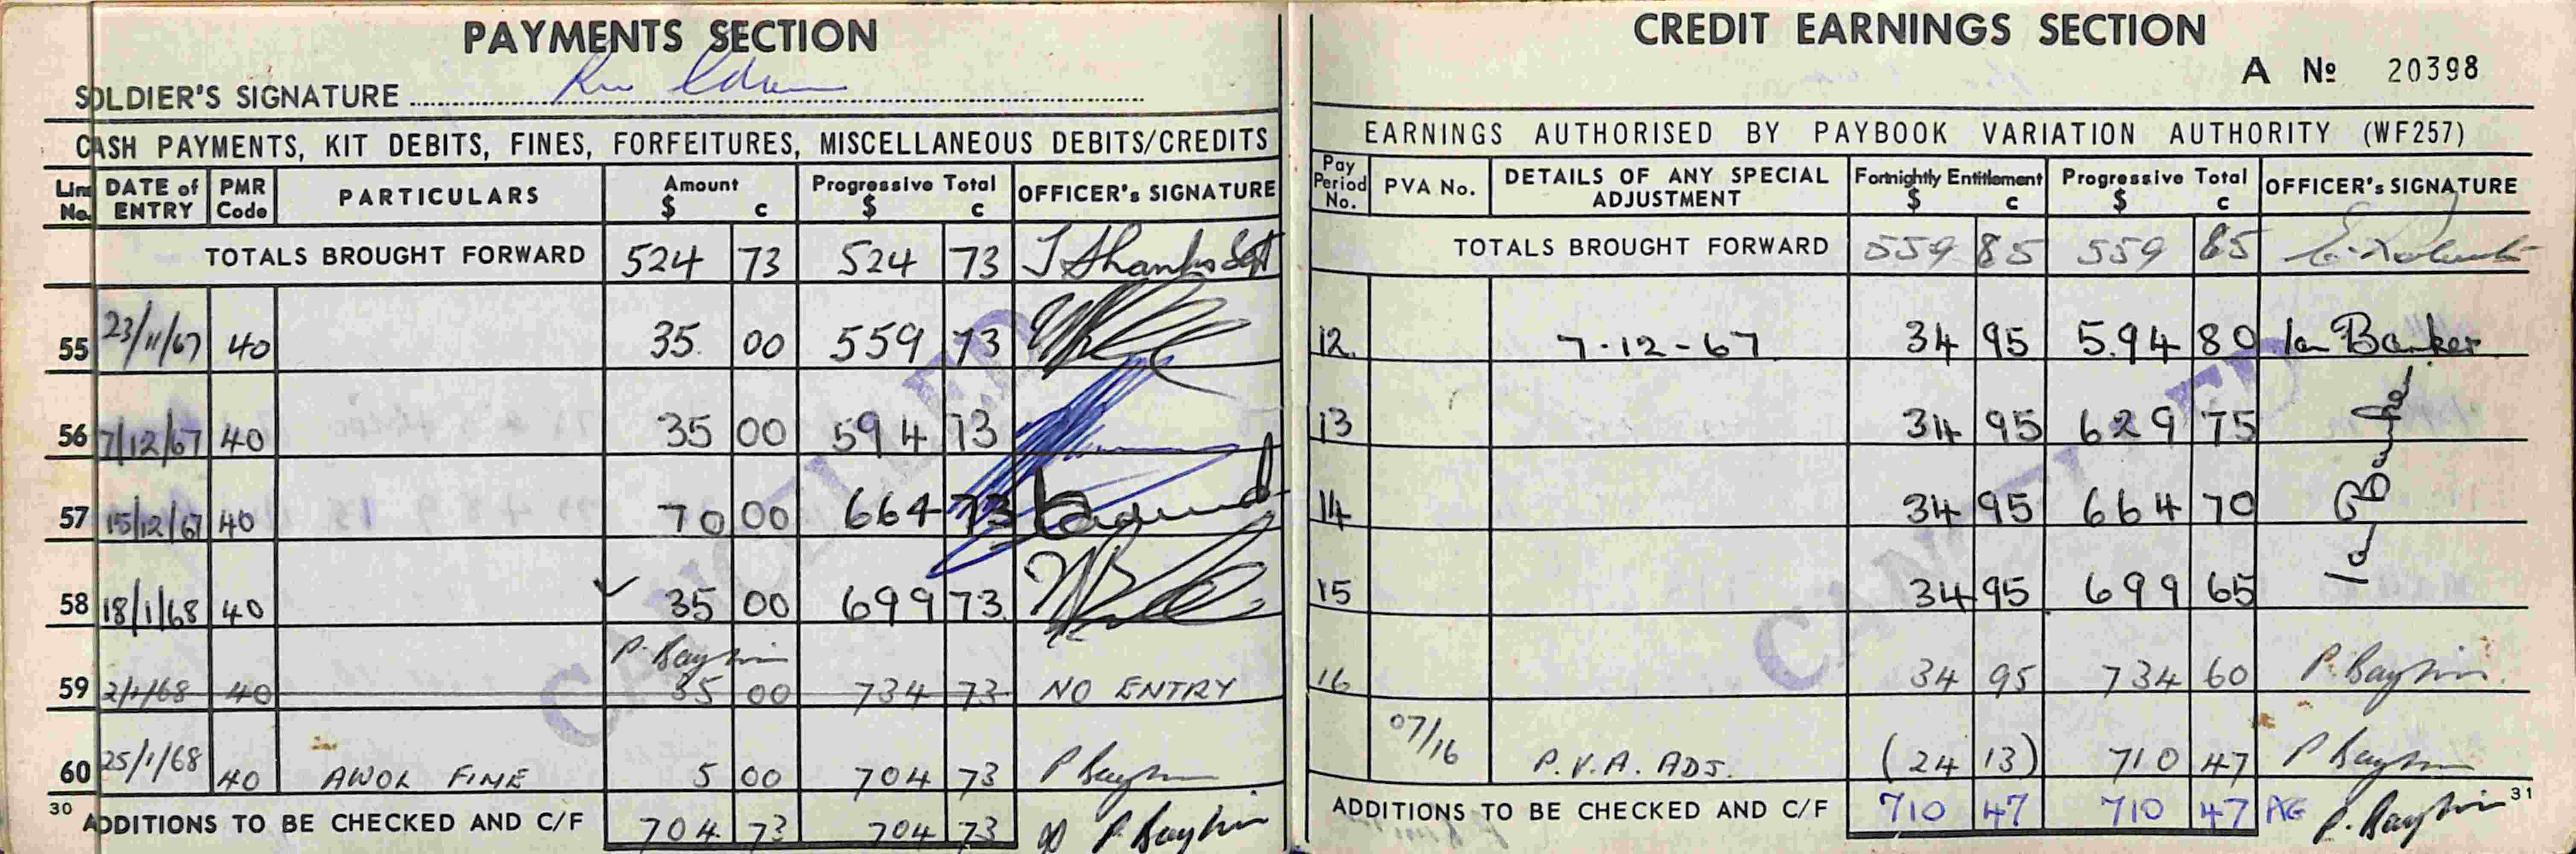 PAYMENTS SECTION
SOLDIER'S SIGNATURE
CASH PAYMENTS, KIT DEBITS, FINES, FORFEITURES, MISCELLANEOUS DEBITS/CREDITS
Line No. DATE of ENTRY PMR Code PARTICULARS Amount $ c Progressive Total $ c OFFICER's SIGNATURE
TOTALS BROUGHT FORWARD 524 73 524 73 J Shanks Sgt
55 23/11/67 40 35 00 559 73
56 7/12/67 40 35 00 594 73
57 15/12/67 40 70 00 664 73
58 18/1/68 40 35 00 699 73
59 2/1/68 40 35 00 734 73 NO ENTRY
60 25/1/68 40 AWOL FINE 5 00 704 73
30 ADDITIONS TO BE CHECKED AND C/F 704 73 704 73
CANCELLED
CREDIT EARNINGS SECTION
A No 20398
EARNINGS AUTHORISED BY PAYBOOK VARIATION AUTHORITY (WF257)
Pay Period No. PVA No. DETAILS OF ANY SPECIAL ADJUSTMENT Fortnightly Entitlement $ c Progressive Total $ c OFFICER's SIGNATURE
TOTALS BROUGHT FORWARD 559 85 559 85
12. 7-12-67 34 95 594 80 Ian Barker
13 34 95 629 75
14 34 95 664 70 Ian Barker
15 34 95 699 65
16 34 95 734 60
07/16 P.V.A. ADJ. (24 13) 710 47
ADDITIONS TO BE CHECKED AND C/F 710 47 710 47 AG 31
CANCELLED